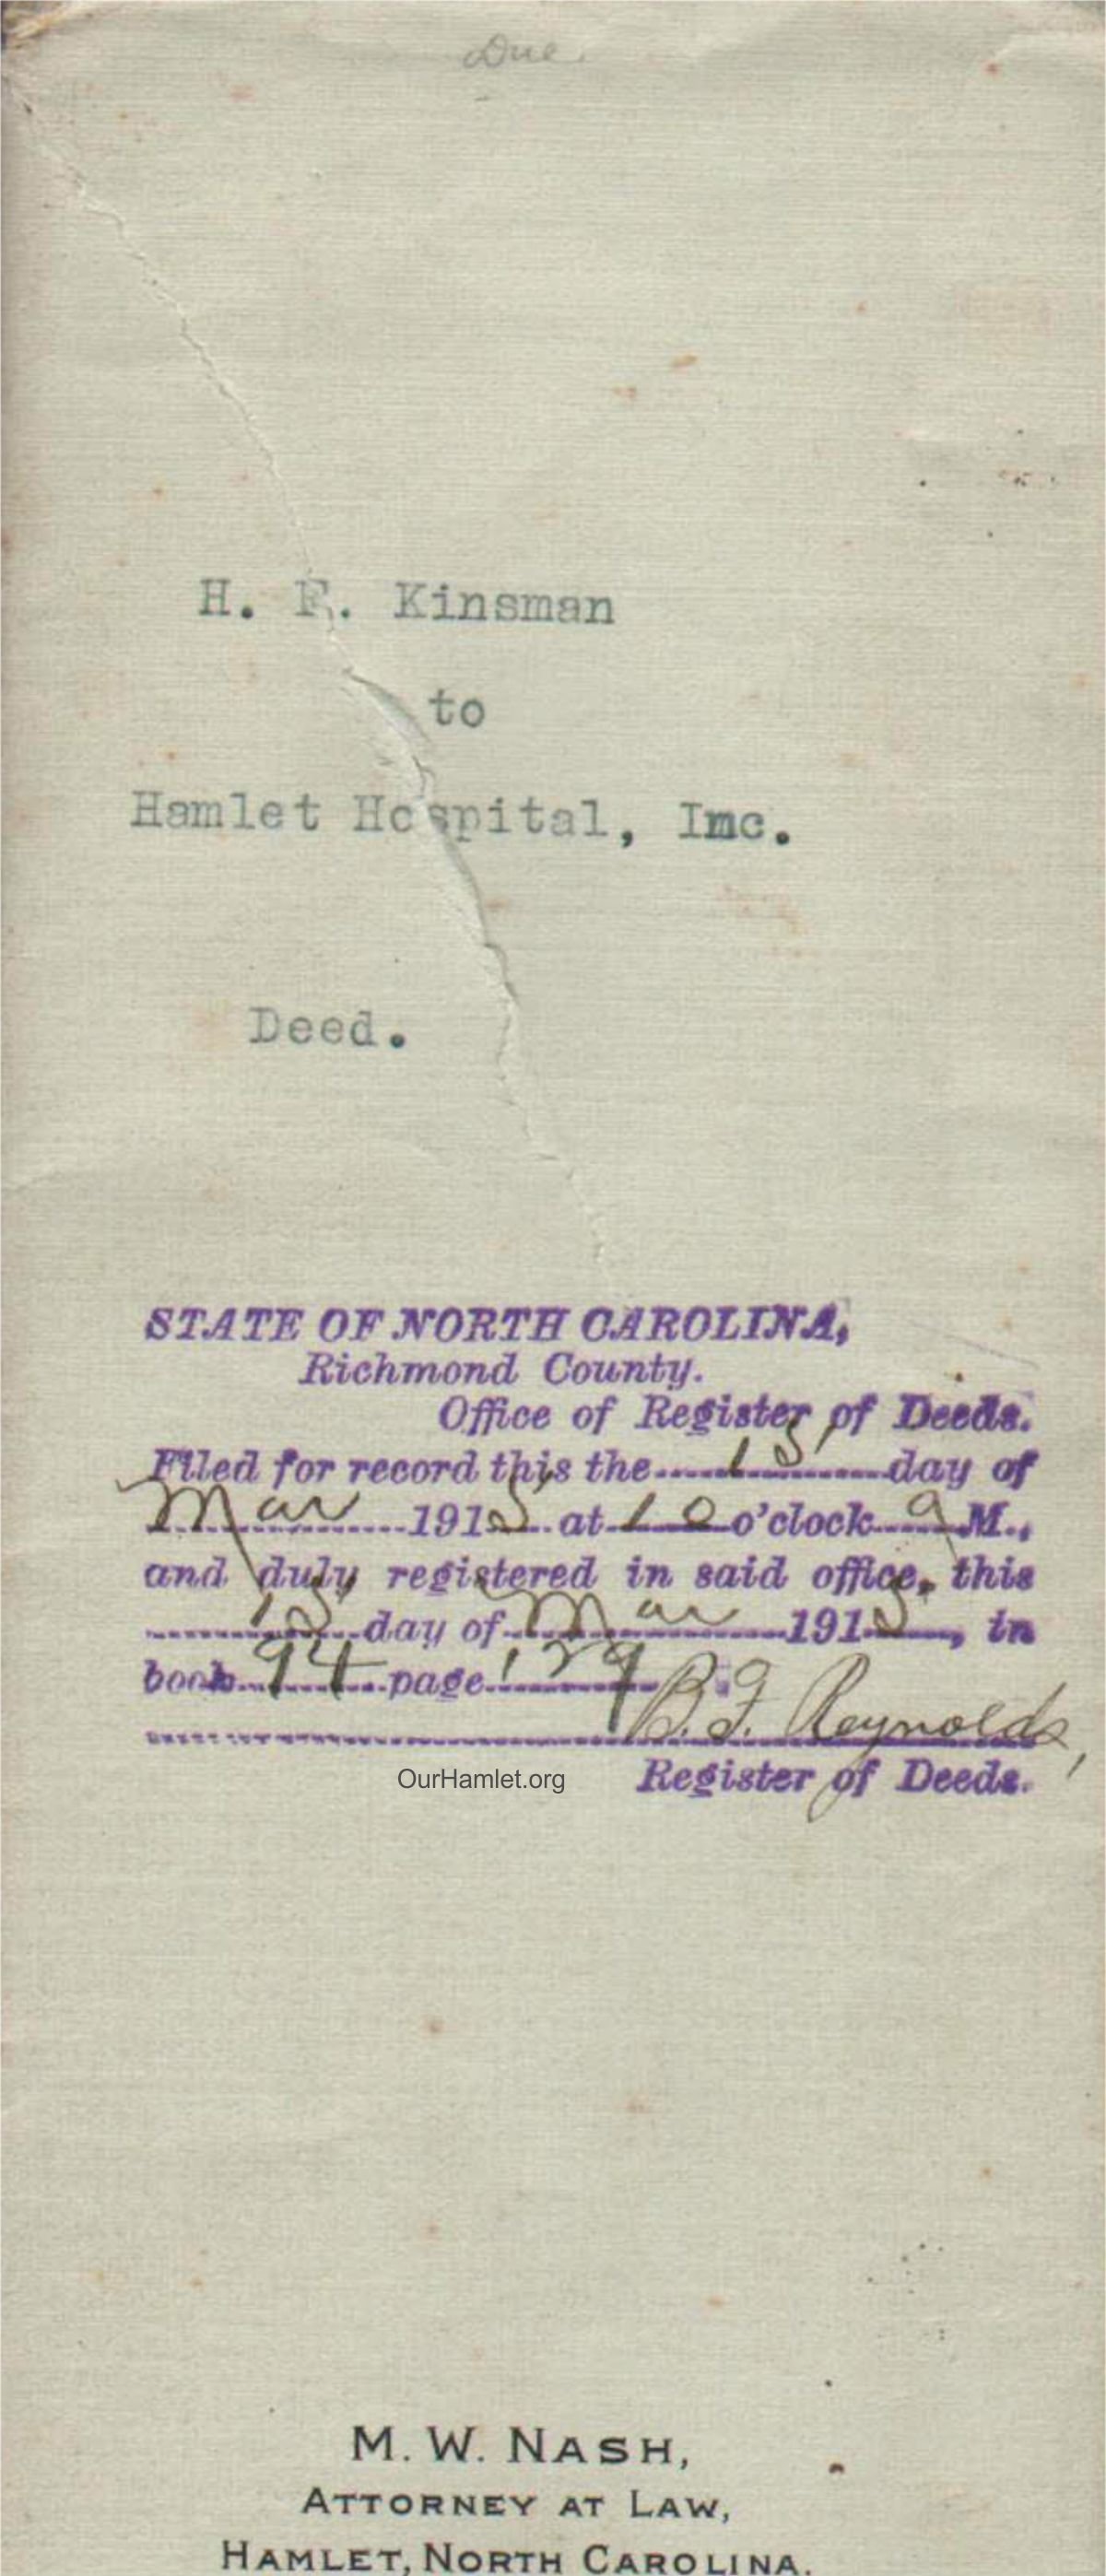 Due.
H. F. Kinsman
to
Hamlet Hospital, Inc.
Deed.
STATE OF NORTH CAROLINA,
Richmond County.
Office of Register of Deeds.
Filed for record this the 15 day of
Mar 1915 at 10 o'clock a M.,
and duly registered in said office, this
15 day of Mar 1915, in
book 94 page
B. F. Reynolds,
OurHamlet.org Register of Deeds.
M. W. NASH,
ATTORNEY AT LAW,
HAMLET, NORTH CAROLINA.